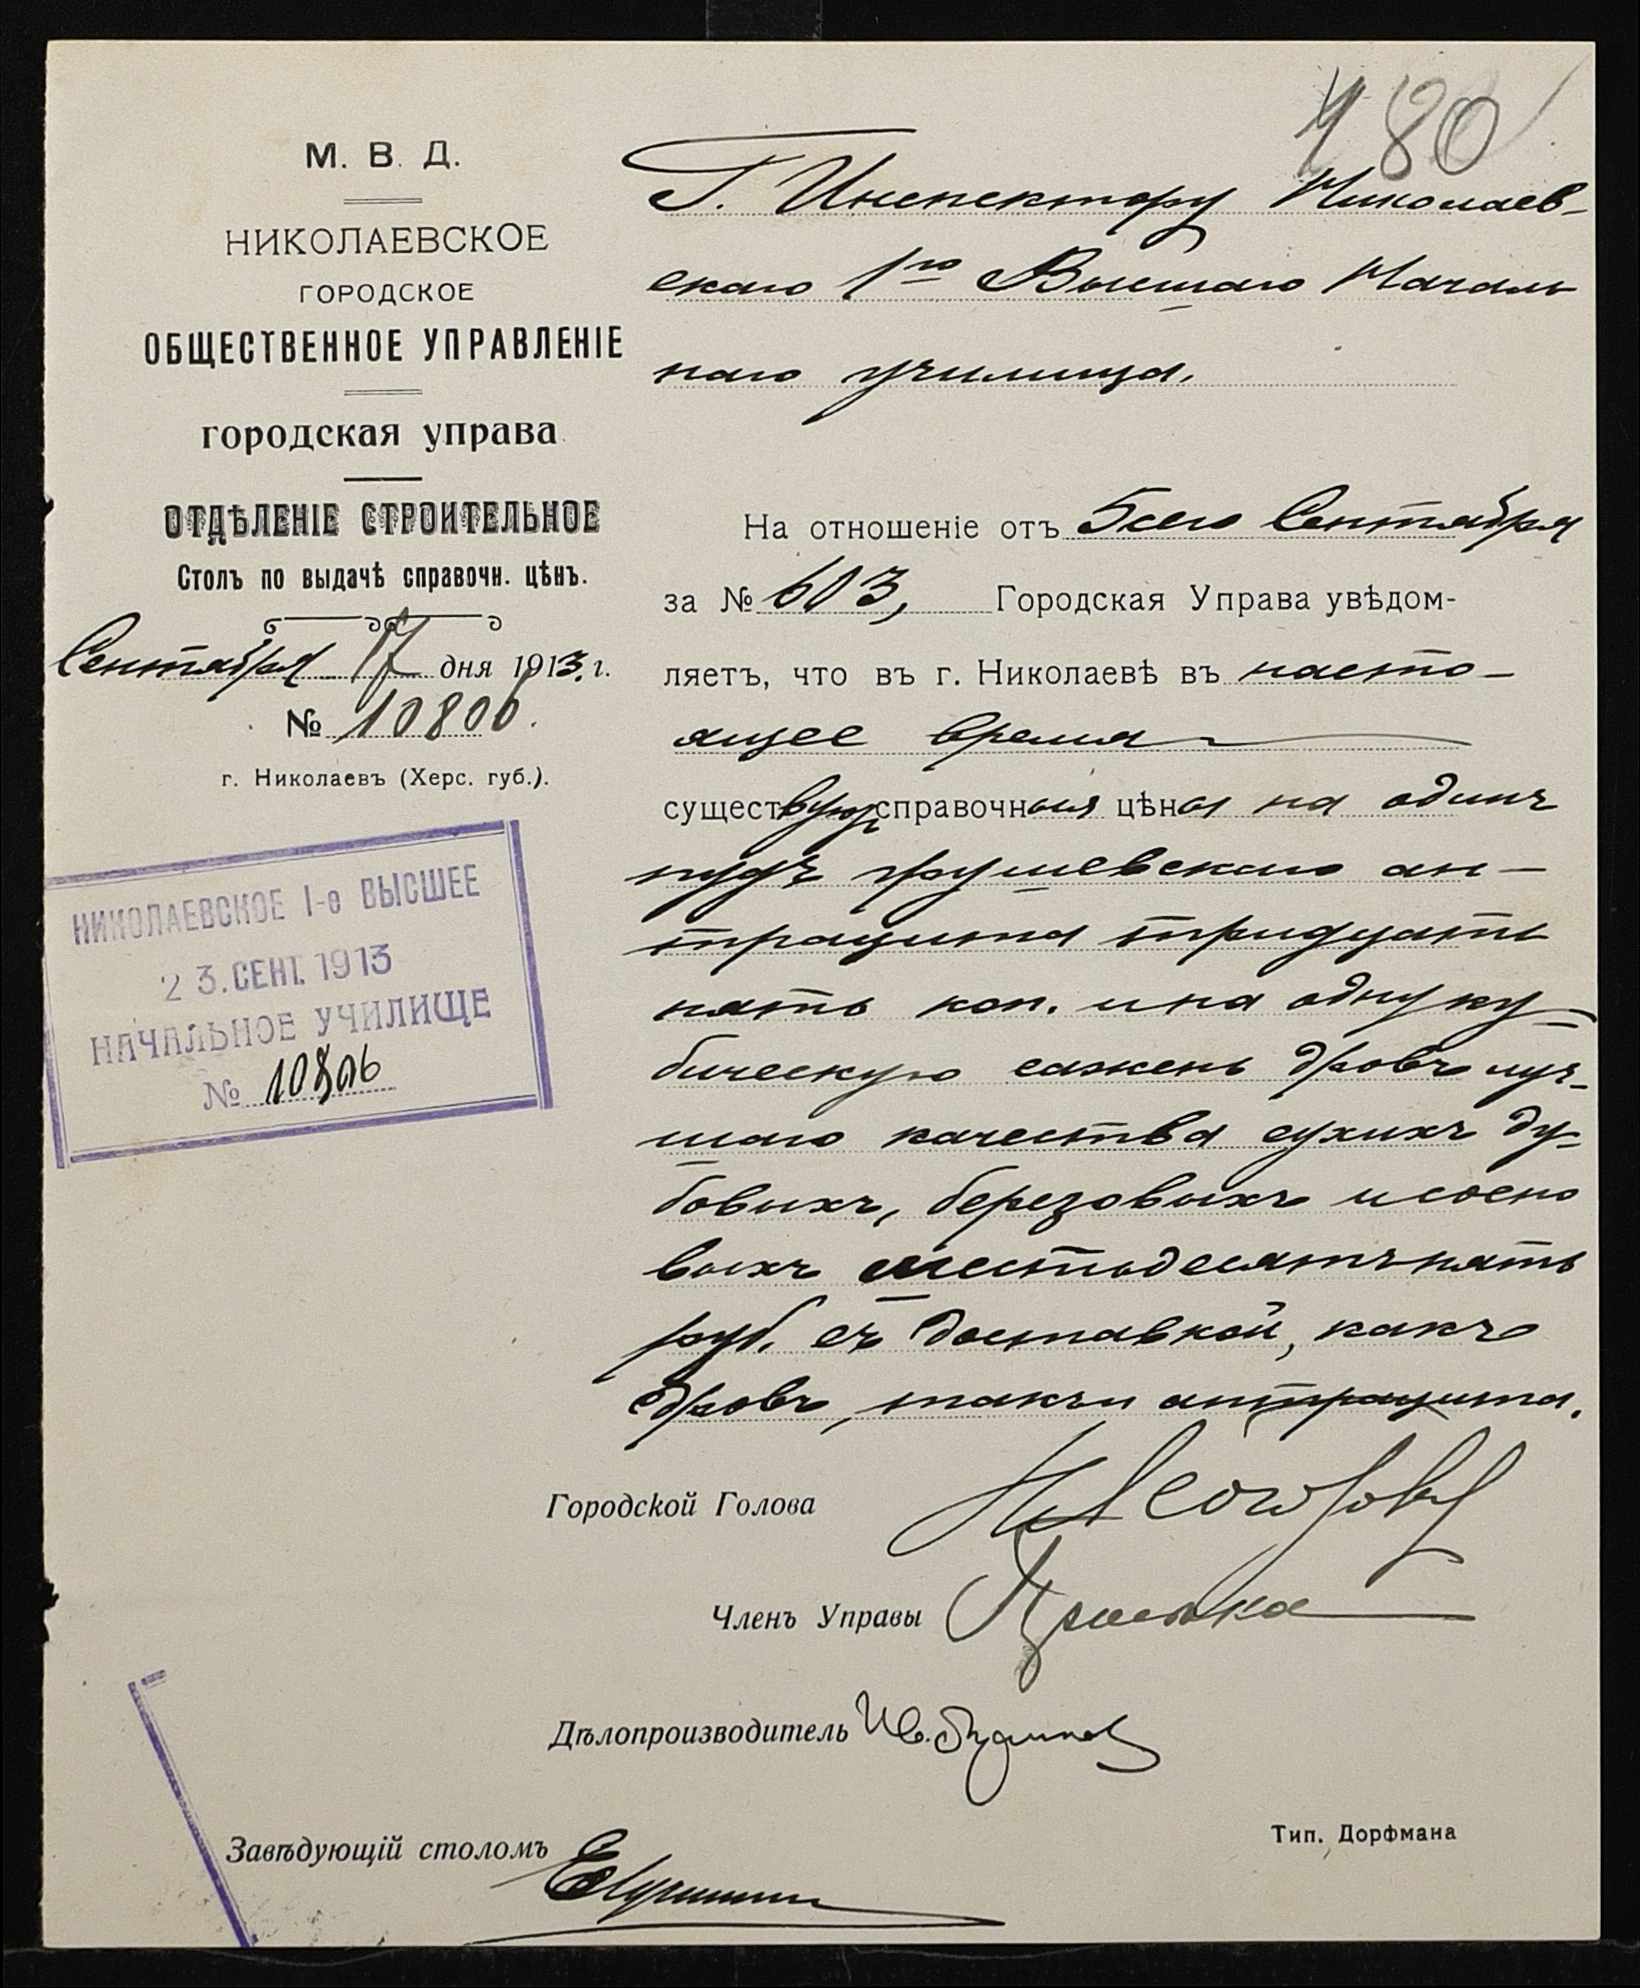 480
М. В. Д.
НИКОЛАЕВСКОЕ
ГОРОДСКОЕ
ОБЩЕСТВЕННОЕ УПРАВЛЕНІЕ
городская управа
ОТДѢЛЕНІЕ СТРОИТЕЛЬНОЕ
Столъ по выдачѣ справочн. цѣнъ.
Сентября 17 дня 1913 г.
№ 10806.
г. Николаевъ (Херс. губ.).
НИКОЛАЕВСКОЕ I-е ВЫСШЕЕ
23. СЕНТ. 1913
НАЧАЛЬНОЕ УЧИЛИЩЕ
№ 10806
Г. Инспектору Николаев-
скаго 1го Высшаго Началь
наго училища.
На отношеніе отъ 5 сего Сентября
за № 603, Городская Управа увѣдом-
ляетъ, что въ г. Николаевѣ въ насто-
ящее время
существуют справочныя цѣны на одинъ
пудъ грушевскаго ан-
трацита тридцать
пять коп. и на одну ку-
бическую сажень дровъ луч-
шаго качества сухихъ ду-
бовыхъ, березовыхъ и сосно
выхъ шестьдесятъ пять
руб. съ доставкой, какъ
дровъ, такъ и антрацита.
Городской Голова
Членъ Управы
Дѣлопроизводитель Ив.
Завѣдующій столомъ
Тип. Дорфмана